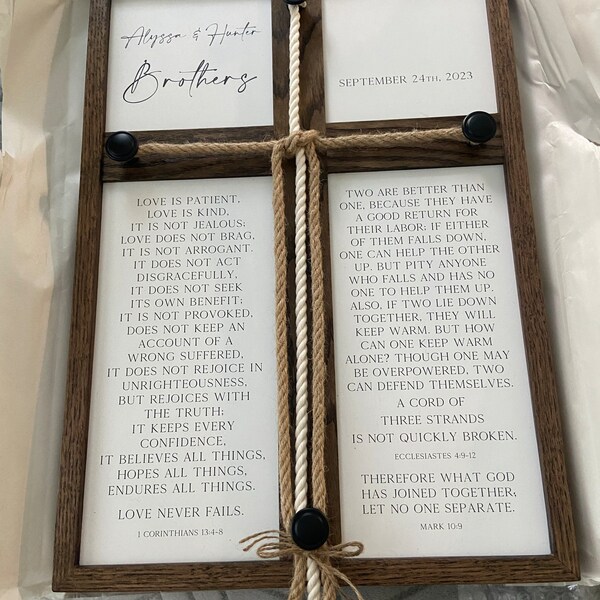 Alyssa & Hunter
Brothers
SEPTEMBER 24TH, 2023
LOVE IS PATIENT,
LOVE IS KIND,
IT IS NOT JEALOUS;
LOVE DOES NOT BRAG,
IT IS NOT ARROGANT.
IT DOES NOT ACT
DISGRACEFULLY,
IT DOES NOT SEEK
ITS OWN BENEFIT;
IT IS NOT PROVOKED,
DOES NOT KEEP AN
ACCOUNT OF A
WRONG SUFFERED,
IT DOES NOT REJOICE IN
UNRIGHTEOUSNESS,
BUT REJOICES WITH
THE TRUTH;
IT KEEPS EVERY
CONFIDENCE,
IT BELIEVES ALL THINGS,
HOPES ALL THINGS,
ENDURES ALL THINGS.
LOVE NEVER FAILS.
1 CORINTHIANS 13:4-8
TWO ARE BETTER THAN
ONE, BECAUSE THEY HAVE
A GOOD RETURN FOR
THEIR LABOR: IF EITHER
OF THEM FALLS DOWN,
ONE CAN HELP THE OTHER
UP. BUT PITY ANYONE
WHO FALLS AND HAS NO
ONE TO HELP THEM UP.
ALSO, IF TWO LIE DOWN
TOGETHER, THEY WILL
KEEP WARM. BUT HOW
CAN ONE KEEP WARM
ALONE? THOUGH ONE MAY
BE OVERPOWERED, TWO
CAN DEFEND THEMSELVES.
A CORD OF
THREE STRANDS
IS NOT QUICKLY BROKEN.
ECCLESIASTES 4:9-12
THEREFORE WHAT GOD
HAS JOINED TOGETHER,
LET NO ONE SEPARATE.
MARK 10:9